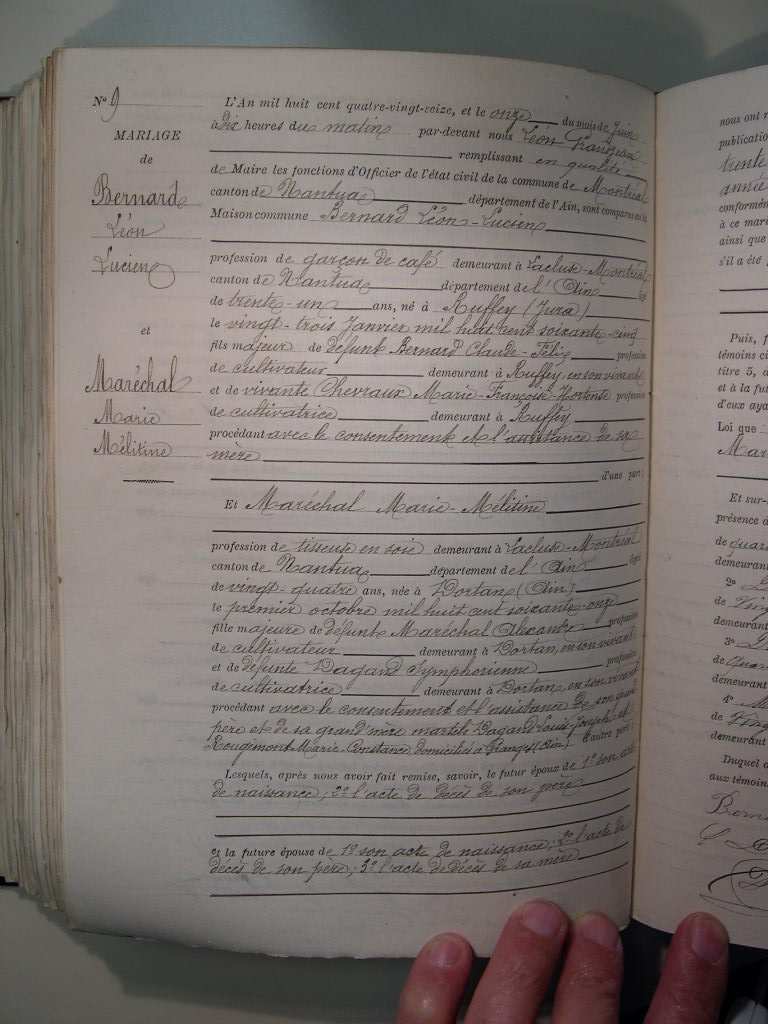 Nº 9
MARIAGE
de
Bernard
Léon
Lucien
et
Maréchal
Marie
Mélitine
L'An mil huit cent quatre-vingt-seize, et le onze du mois de Juin
à Dix heures du matin par-devant nous Léon
remplissant en qualité
de Maire les fonctions d'Officier de l'état civil de la commune de Montréal
canton de Nantua département de l'Ain, sont comparus en la
Maison commune Bernard Léon-Lucien
profession de garçon de café demeurant à Lacluse-Montréal
canton de Nantua département de l'Ain âgé
de trente-un ans, né à Ruffey (Jura)
le vingt-trois Janvier mil huit cent soixante-cinq
fils majeur de défunt Bernard Claude-Félix profession
de cultivateur demeurant à Ruffey, en son vivant
et de vivante Chevraux Marie-Françoise-Hortense profession
de cultivatrice demeurant à Ruffey
procédant avec le consentement et l'assistance de sa
mère
d'une part;
Et Maréchal Marie-Mélitine
profession de tisseuse en soie demeurant à Lacluse-Montréal
canton de Nantua département de l'Ain âgée
de vingt-quatre ans, née à Dortan (Ain)
le premier octobre mil huit cent soixante-onze
fille majeure de défunt Maréchal Alexandre profession
de cultivateur demeurant à Dortan, en son vivant
et de défunte Dagand Symphorienne profession
de cultivatrice demeurant à Dortan, en son vivant
procédant avec le consentement et l'assistance de son grand
père et de sa grand'mère Dagand Louis Joseph et
Rougemont Marie-Constance domiciliés à (Ain) d'autre part;
Lesquels, après nous avoir fait remise, savoir, le futur époux de 1º son acte
de naissance; 2º l'acte de décès de son père
et la future épouse de 1º son acte de naissance; 2º l'acte de
décès de son père; 3º l'acte de décès de sa mère
nous ont
publication
trente
année
à ce mar
ainsi que
s'il a été
Puis,
témoins
titre 5,
et à la fut
d'eux aya
Loi que
Mar
Et sur-
présence d
de quar
demeurant
2º
de Ving
demeurant
3º
de quar
demeurant
4º
de Ving
demeurant
Duquel a
aux témoin
Bern